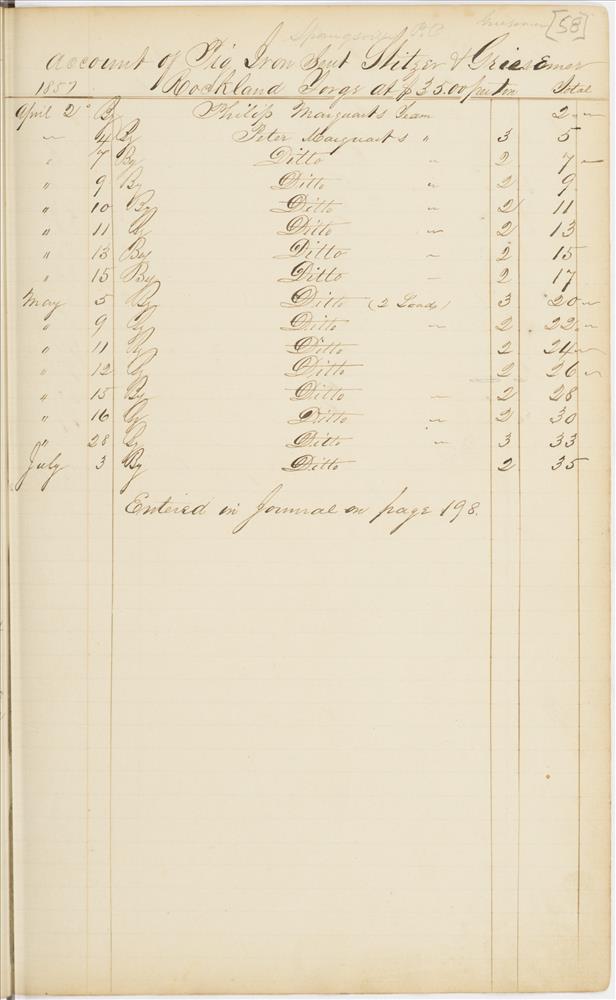 Griesemer [58]
Account of Pig Iron Sent Stitzer & Griesemer
1857 Rockland Forge at $35.00 per ton Total
April 2d By Philip Marquarts Team 2
" 4 By Peter Marquarts " 3 5
" 7 By Ditto " 2 7
" 9 By Ditto " 2 9
" 10 By Ditto " 2 11
" 11 By Ditto " 2 13
" 13 By Ditto " 2 15
" 15 By Ditto " 2 17
May 5 By Ditto (2 Loads) 3 20
" 9 By Ditto " 2 22
" 11 By Ditto 2 24
" 12 By Ditto 2 26
" 15 By Ditto " 2 28
" 16 By Ditto " 2 30
" 28 By Ditto " 3 33
July 3 By Ditto 2 35
Entered in Journal on page 198.